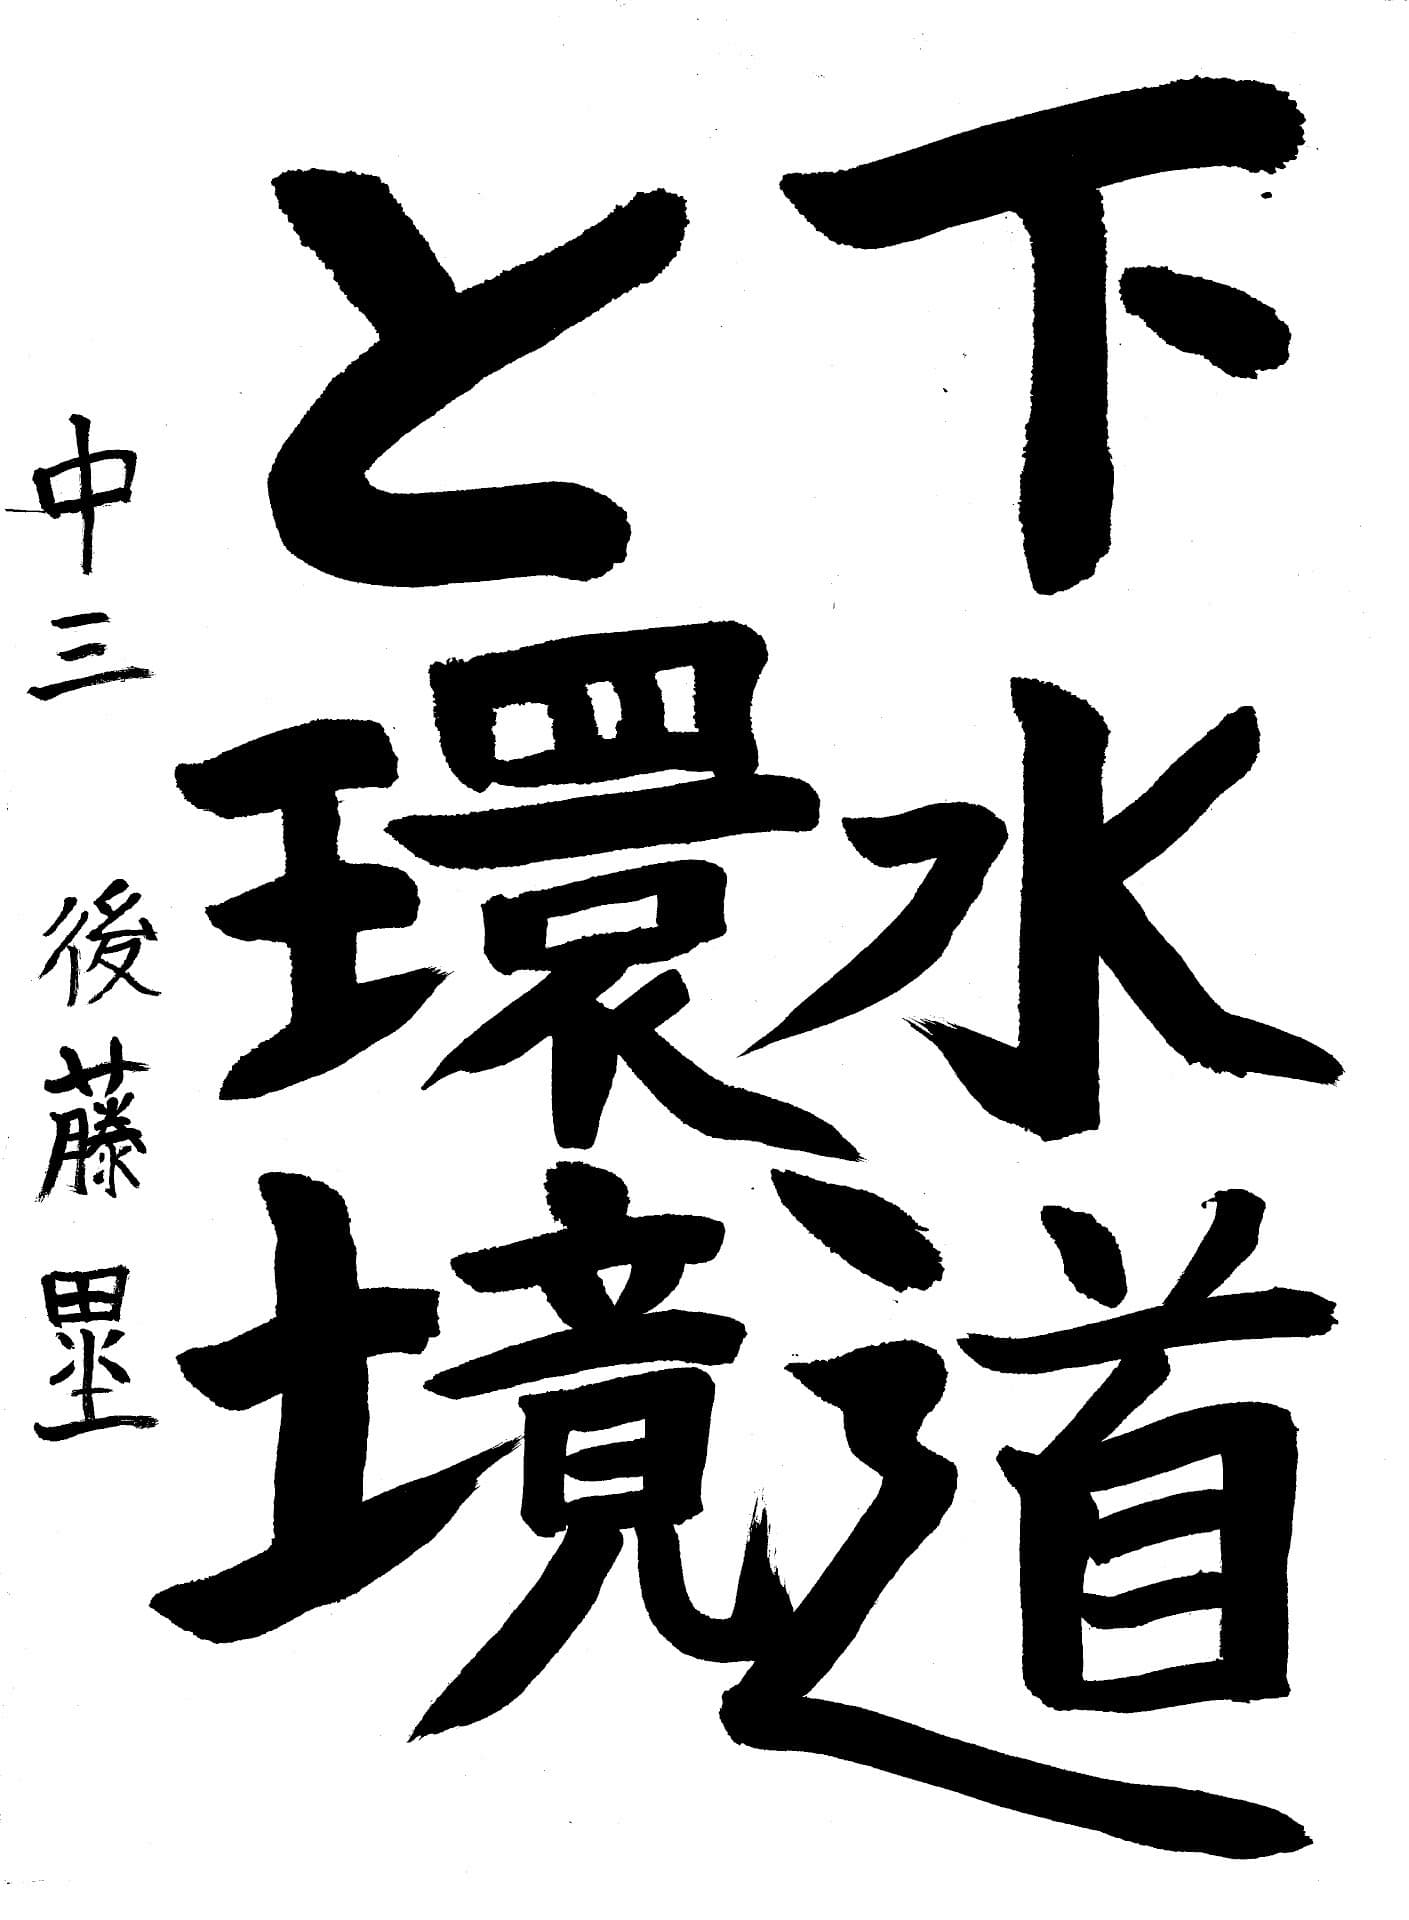 下水道
と環境
中三 後藤塁